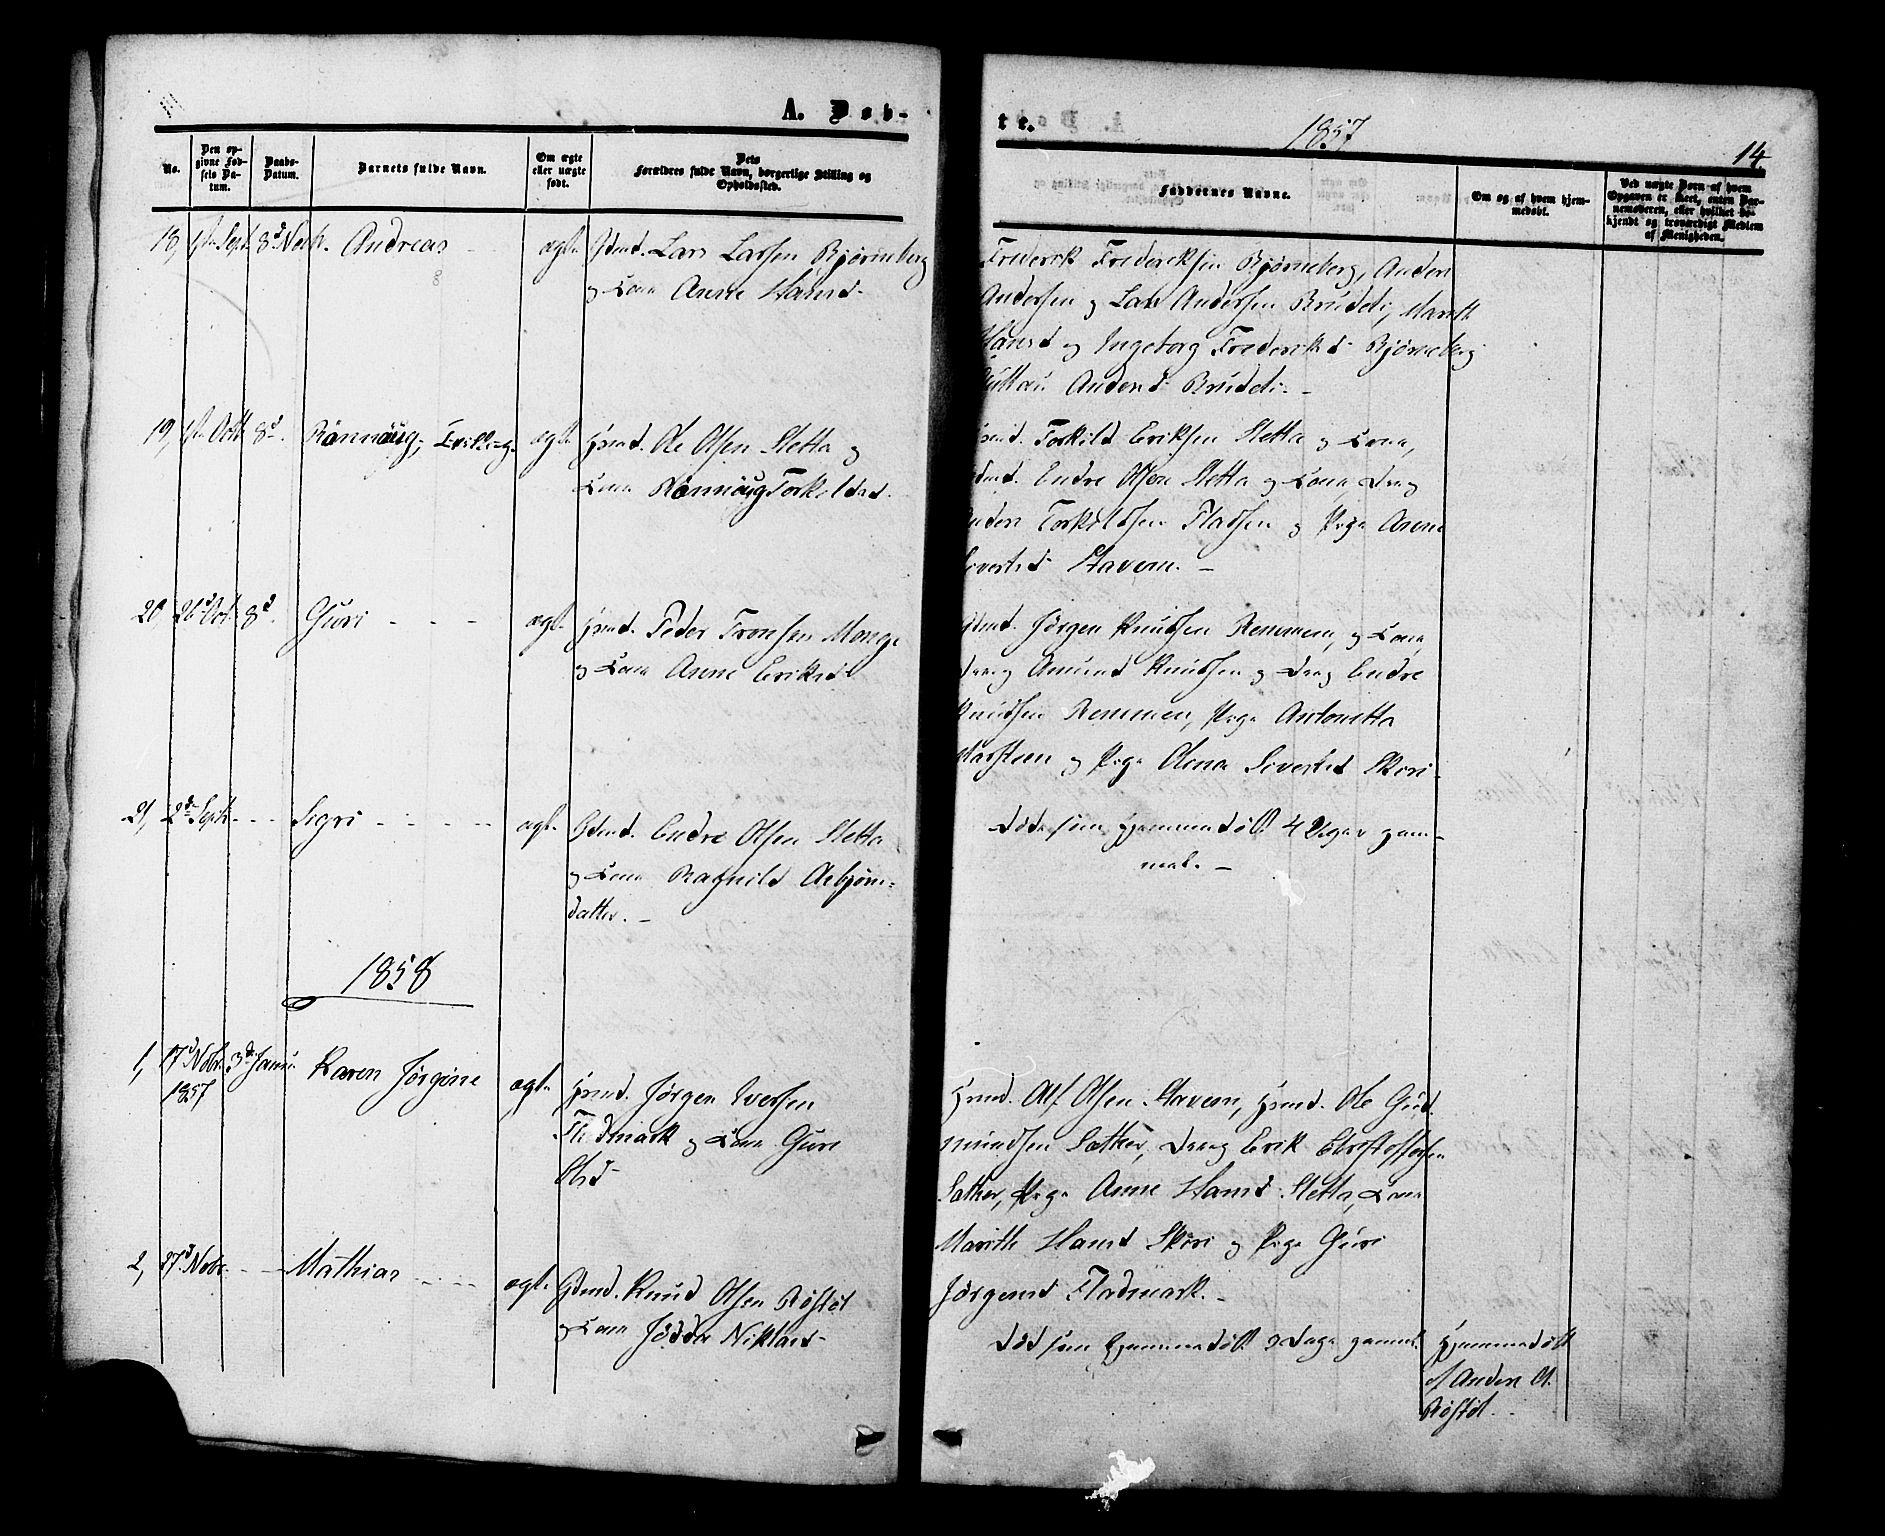 A. Døb-
No.
Den op-
givne Fød-
sels Da-
tum.
Daabs-
Datum.
Barnets fulde Navn.
Om ægte
eller uægte
født.
Dets
Forældres fulde Navn, borgerlige Stilling og
Opholdssted.
18, 1ste Sept. 8d Novbr. Andreas - ægte Gdmd. Lars Larsen Bjørneberg
og Kona Anne Hansd-
19, 1ste Octb 8d. Rønnaug, Tvilling. ægte Hsmd. Ole Olsen Sletta og
Kona Rønnaug Torkildsd.
20 26d Oct. 8d. Guri - - - - ægt. Hsmd. Peder Tronsen Monge
og Kona Anne Eriksd
21, 2den Septb - - - Sigri - - - - - ægt. Gdmd. Endre Olsen Sletta
og Kona Ragnild Asbjørns-
datter. -
1858
1, 17d Novbr. 3die Janu. Karen Jørgine ægte Hsmd. Jørgen Iversen
1857 Fladmark og Kona Guri
Olsd-
2, 27d Novbr. - - - Mathias - - - - ægt. Gdmd. Knud Olsen Røstøl
og Kona Jødda Niklasd-
te.
1857
14
Faddernes Navne.
Om og af hvem hjem-
medøbt.
Ved uægte Børn af hvem
Opgaven er skeet, enten Bar-
nemoderen, eller hvilket be-
kjendt og troværdigt Medlem
af Menigheden.
Frederik Frederiksen Bjørneberg, Anders
Andersen og Lars Andersen Brudeli, Marith
Hansd og Ingeborg Frederiksd Bjørneberg
Andersd Brudeli. -
Hsmd. Torkild Eriksen Sletta og Kona,
Gdmd. Endre Olsen Sletta og Kona, Dreng
Anders Torkildsen og Pige Anne
Sivertsd Stavem. -
Gdmd. Jørgen Knudsen Remmem, og Kona,
Dreng Amund Knudsen og Dreng Endre
Knudsen Remmem, Pige Antonetta
og Pige Olena Sivertsd Skiri-
Døde som hjemmedøbt 4 Uger gam-
mel. -
Hsmd. Alf Olsen Stavem, Hsmd. Ole Gud-
mundsen Sæther, Dreng Erik Christoffersen
Sæther, Pige Anne Hansd Sletta, Kona
Marith Hansd Skiri og Pige Guri
Jørgensd Fladmark. -
Død som hjemmedøbt 3 Dage gammel. Hjemmedøbt
af Anders O.
Røstøl. -